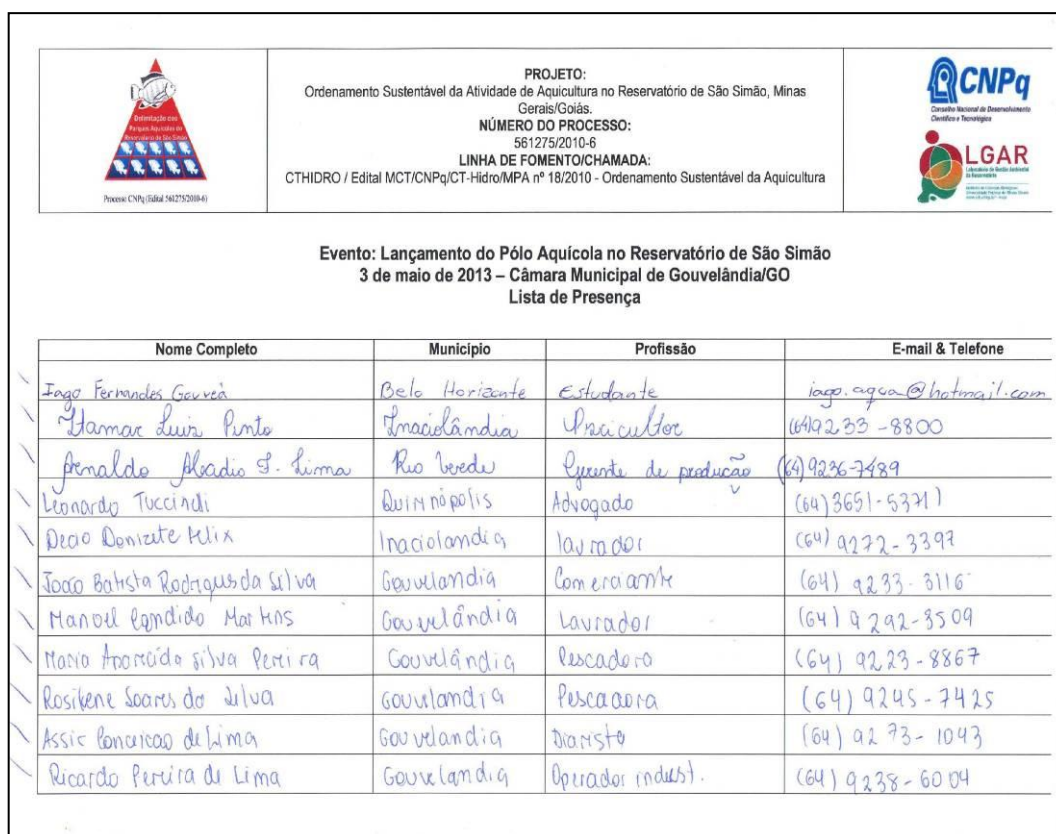 Delimitação dos
Parques Aquícolas do
Reservatório de São Simão
Processo CNPq (Edital 561275/2010-6)
PROJETO:
Ordenamento Sustentável da Atividade de Aquicultura no Reservatório de São Simão, Minas
Gerais/Goiás.
NÚMERO DO PROCESSO:
561275/2010-6
LINHA DE FOMENTO/CHAMADA:
CTHIDRO / Edital MCT/CNPq/CT-Hidro/MPA nº 18/2010 - Ordenamento Sustentável da Aquicultura
CNPq
Conselho Nacional de Desenvolvimento
Científico e Tecnológico
LGAR
Laboratório de Gestão Ambiental
de Reservatórios
Evento: Lançamento do Pólo Aquícola no Reservatório de São Simão
3 de maio de 2013 – Câmara Municipal de Gouvelândia/GO
Lista de Presença
Nome Completo Município Profissão E-mail & Telefone
Iago Fernandes Gouvêa Belo Horizonte Estudante iago.aqua@hotmail.com
Itamar Luiz Pinto Inaciolândia Piscicultor (64)9233-8800
Arnaldo F. Lima Rio Verde Gerente de produção (64)9236-7489
Leonardo Quirinópolis Advogado (64)3651-5371
Decio Donizete Felix Inaciolandia lavrador (64) 9272-3397
João Batista Rodrigues da Silva Gouvelandia Comerciante (64) 9233-3116
Manoel Candido Martins Gouvelândia Lavrador (64) 9292-3509
Maria Aparecida Silva Pereira Gouvelândia Pescadora (64) 9223-8867
Soares da Silva Gouvelandia Pescadora (64) 9245-7425
Assis Conceicao de Lima Gouvelandia Diarista (64) 9273-1043
Ricardo Pereira de Lima Gouvelandia Operador indust. (64) 9238-6004